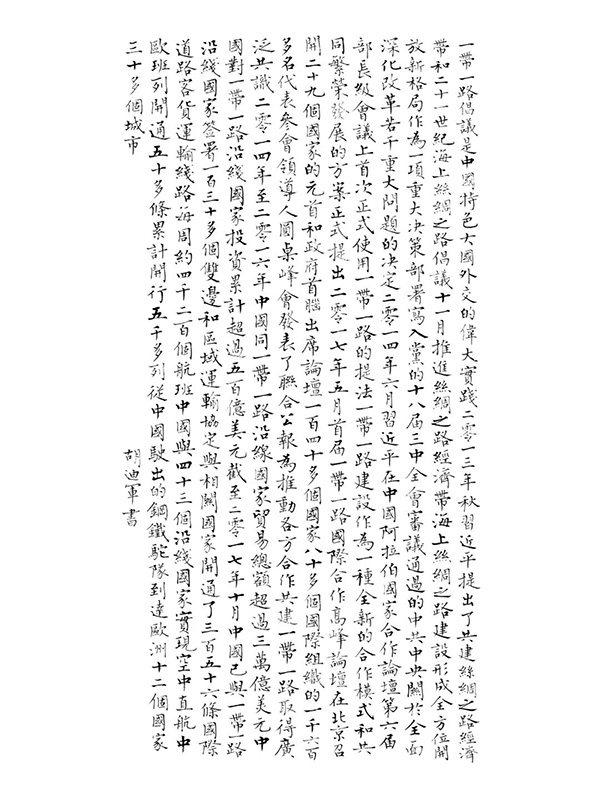 一帶一路倡議是中國特色大國外交的偉大實踐二零一三年秋習近平提出了共建絲綢之路經濟
帶和二十一世紀海上絲綢之路倡議十一月推進絲綢之路經濟帶海上絲綢之路建設形成全方位開
放新格局作為一項重大決策部署寫入黨的十八屆三中全會審議通過的中共中央關於全面
深化改革若干重大問題的決定二零一四年六月習近平在中國阿拉伯國家合作論壇第六屆
部長級會議上首次正式使用一帶一路的提法一帶一路建設作為一種全新的合作模式和共
同繁榮發展的方案正式提出二零一七年五月首屆一帶一路國際合作高峰論壇在北京召
開二十九個國家的元首和政府首腦出席論壇一百四十多個國家八十多個國際組織的一千六百
多名代表參會領導人圓桌峰會發表了聯合公報為推動各方合作共建一帶一路取得廣
泛共識二零一四年至二零一六年中國同一帶一路沿線國家貿易總額超過三萬億美元中
國對一帶一路沿綫國家投資累計超過五百億美元截至二零一七年十月中國已與一帶一路
沿綫國家簽署一百三十多個雙邊和區域運輸協定與相關國家開通了三百五十六條國際
道路客貨運輸綫路每周約四千二百個航班中國與四十三個沿綫國家實現空中直航中
歐班列開通五十多條累計開行五千多列從中國駛出的鋼鐵駝隊到達歐洲十二個國家
三十多個城市
胡迪軍書